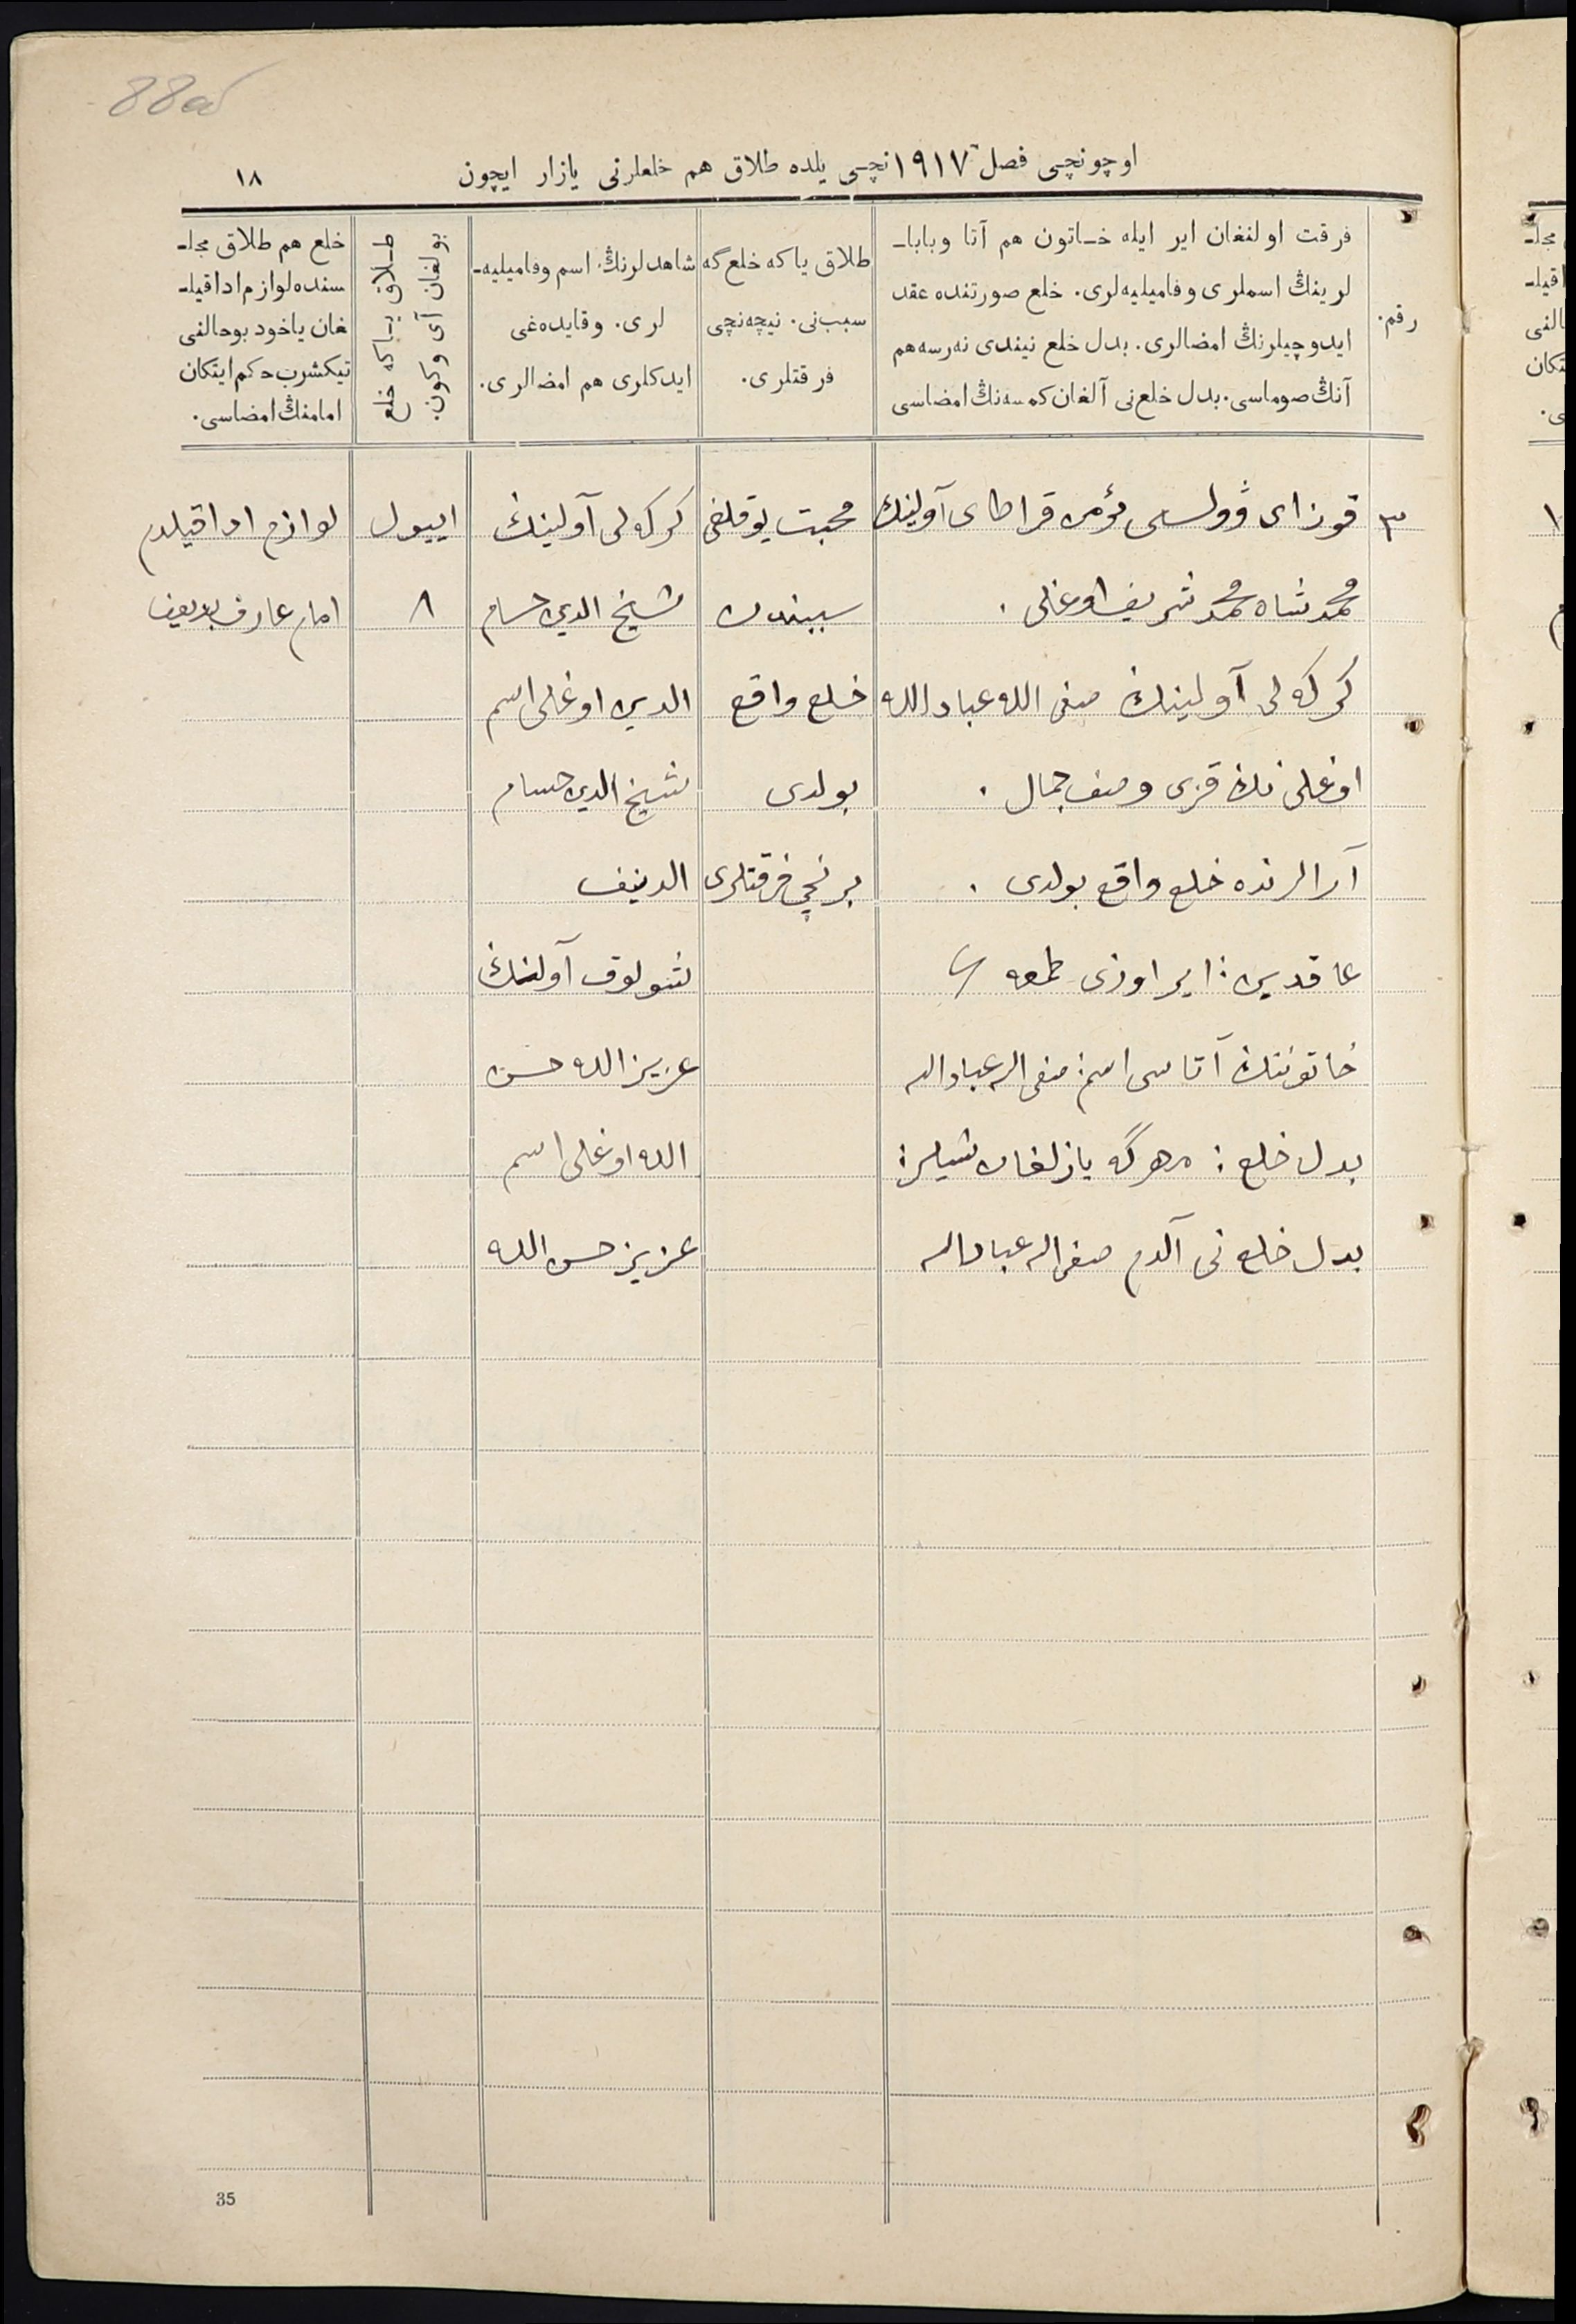 88об
اوچونچی فصل ١٩١٧ نچی یلده طلاق هم خلعلرنی یازار ایچون
١٨
رقم.
فرقت اولنغان ایر ایله خاتون هم آتا وبابا-
لرینڭ اسملری وفامیلیه‌لری. خلع صورتنده عقد
ایدوچیلرنڭ امضالری. بدل خلع نیندی نه‌رسه هم
آنڭ صوماسی. بدل خلع‌نی آلغان کمسه‌نڭ امضاسی
طلاق یاکه خلع گه
سبب نی. نیچه‌نچی
فرقتلری.
شاهدلرنڭ اسم وفامیلیه-
لری. وقایده‌غی
ایدکلری هم امضالری.
طلاق یاکه خلع
بولغان آی وکون.
خلع هم طلاق مجلـ-
سنده لوازم ادا قیلـ-
غان یاخود بوحالنی
تیکشرب حکم ایتکان
امامنڭ امضاسی.
٣
قوزای ڤولسی مؤمن قراطای آولینڭ
محمدشاه محمدشریف اوغلی.
کرکه‌لی آولینڭ صفی الله عبادالله
اوغلی نڭ قزی وصف جمال.
آرالرنده خلع واقع بولدی.
عاقدین: ایر اوزی طمعه
خاتوننڭ آتاسی اسم: صفی الله عبادالله
بدل خلع: مهرگه یازلغان شیلر:
بدل خلع نی آلدم صفی الله عبادالله
محبت یوقلغی
سببندن
خلع واقع
بولدی
برنچی فرقتلری
کرکه‌لی آولینڭ
شیخ الدین حسام
الدین اوغلی اسم
شیخ الدین حسام
الدینف
آولینڭ
عزیزالله حسن
الله اوغلی اسم
عزیز حسن الله
اییول
٨
لوازم ادا قیلدم
امام عارف
35